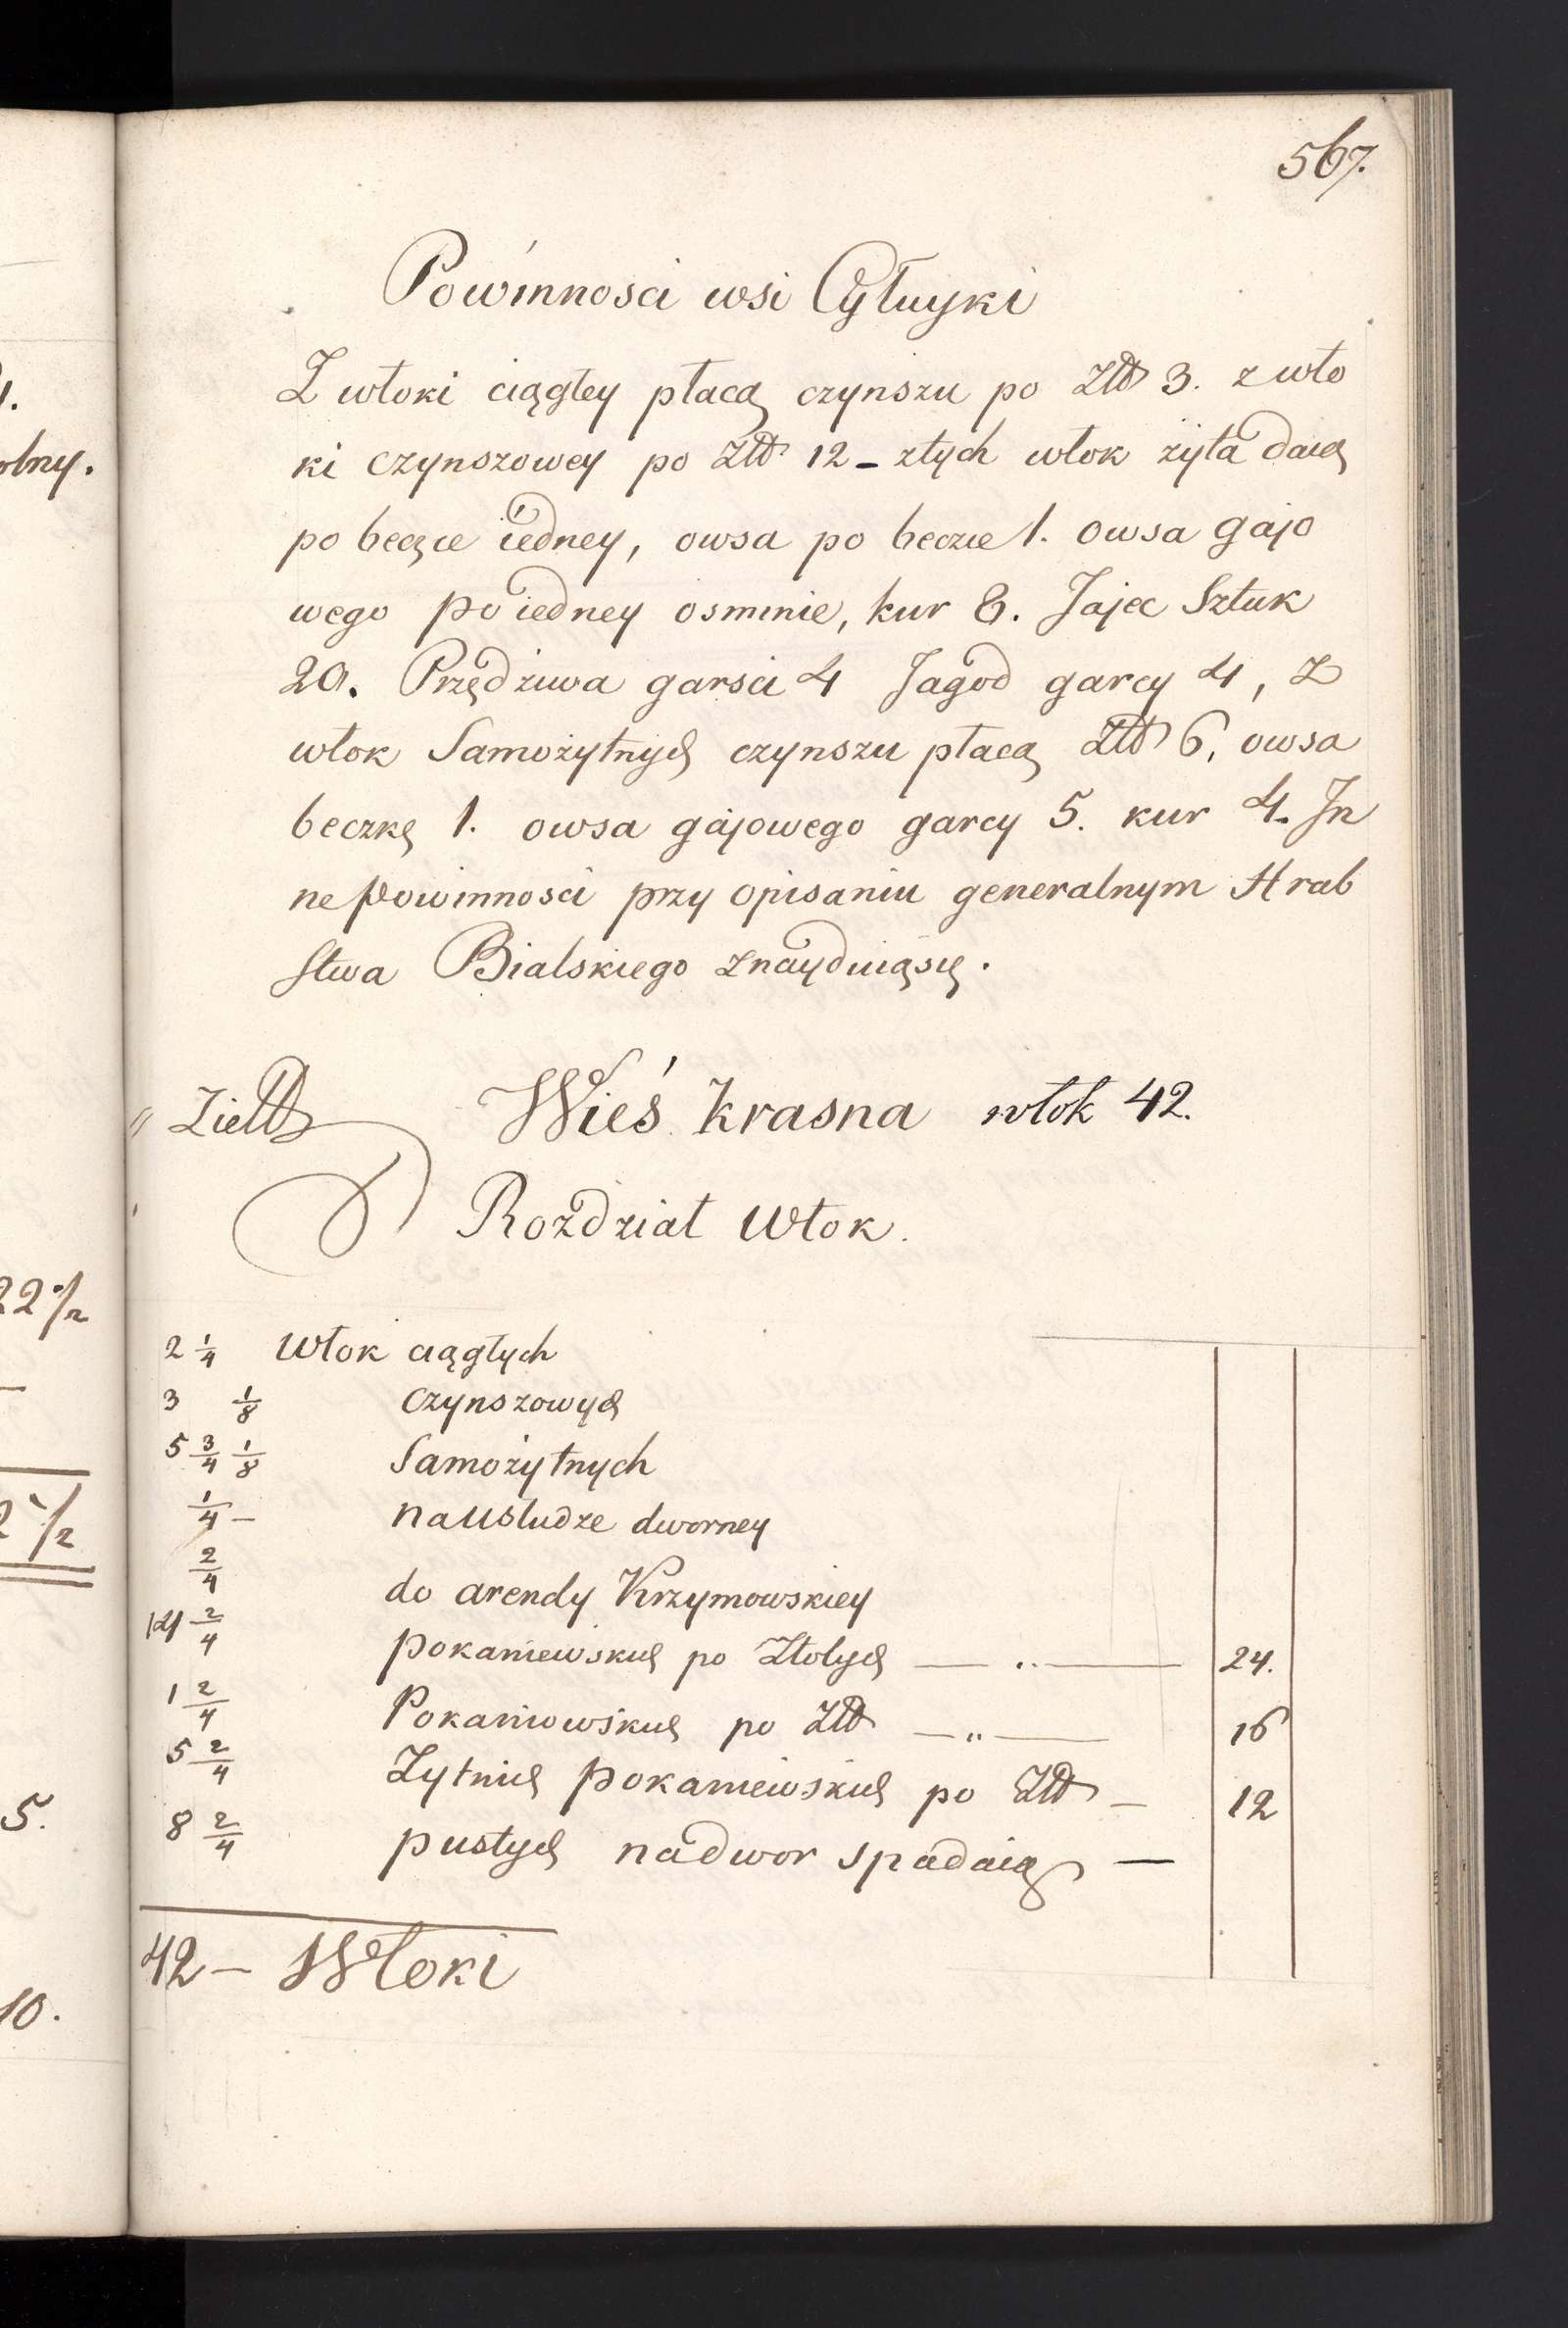 567.
Powinnosci wsi Cyłuyki
Z włoki ciągłey płacą czynszu po Złł 3. z wło
ki czynszowey po Złł 12 - z tych włok zyta daią
po beczce iedney, owsa po beczce 1. owsa gajo
wego po iedney osminie, kur 8. Jajec Sztuk
20. Przędziwa garsci 4 Jagod garcy 4, z
włok Samożytnych czynszu płacą Złł 6, owsa
beczkę 1. owsa gajowego garcy 5. kur 4. In
ne powinnosci przy opisaniu generalnym Hrab
stwa Bialskiego znayduią się.
Wieś Krasna włok 42.
Rozdział Włok.
2 1/4 Włok ciągłych
3 1/8 czynszowych
5 3/4 1/8 Samożytnych
1/4 - na usludze dworney
2/4 do arendy Krzymowskiey
14 2/4 pokaniewskich po Złotych — „ — 24.
1 2/4 Pokaniowskich po Złł — „ — 16
5 2/4 Zytnich pokaniewskich po Złł — 12
8 2/4 pustych na dwor spadaią —
42 - Włoki
olny.
22 1/2
2 1/2
5.
10.